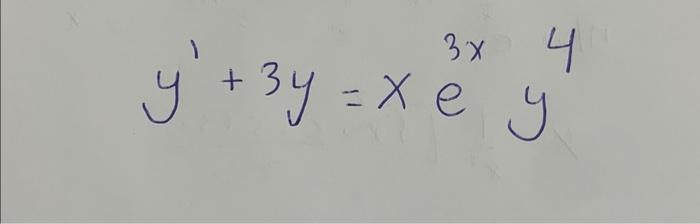 y' + 3y = x e^{3x} y^4